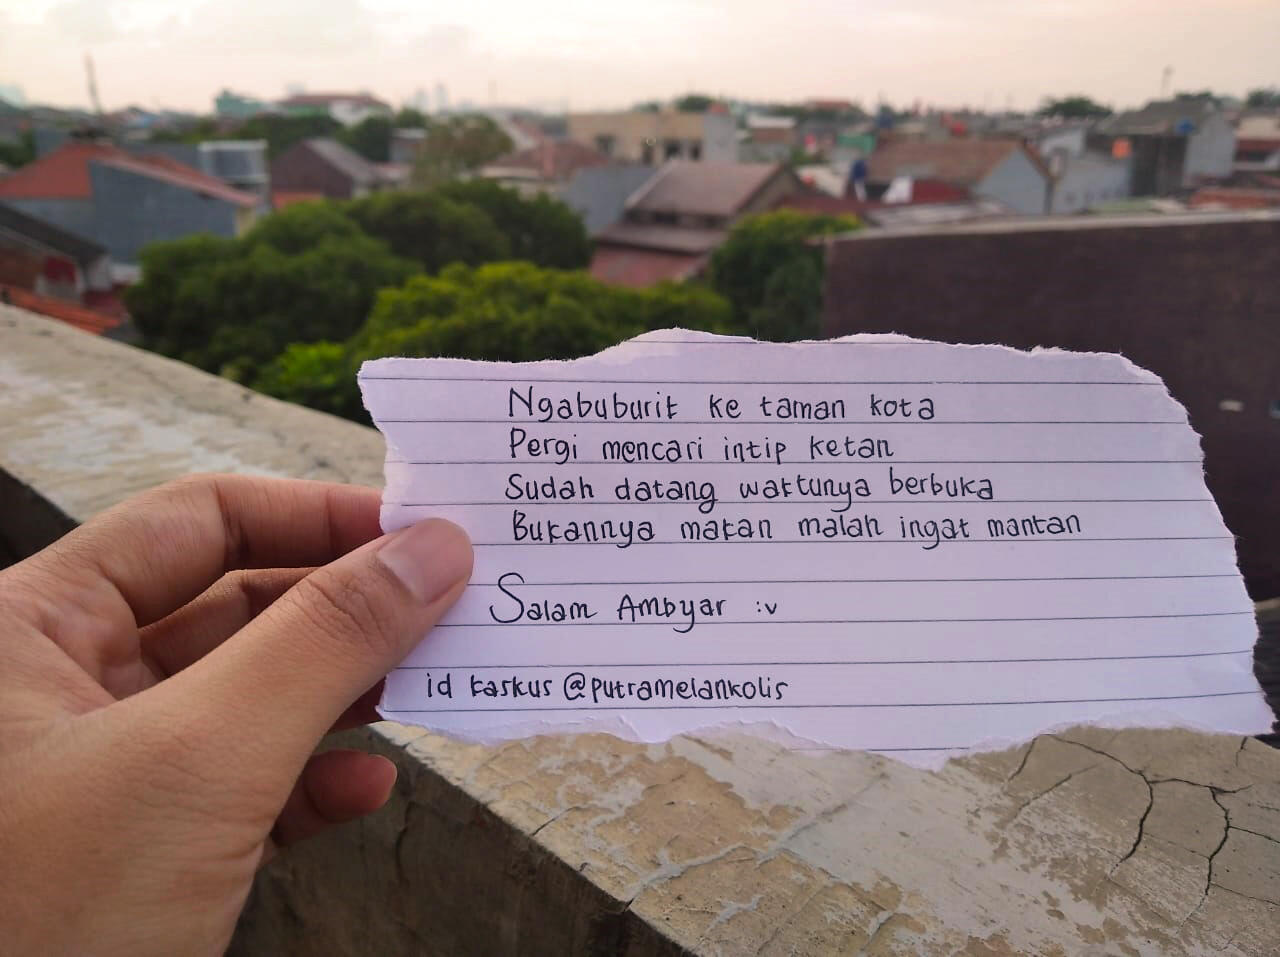 Ngabuburit ke taman kota
Pergi mencari intip ketan
Sudah datang waktunya berbuka
Bukannya makan malah ingat mantan
Salam Ambyar :v
id kaskus @putramelankolis